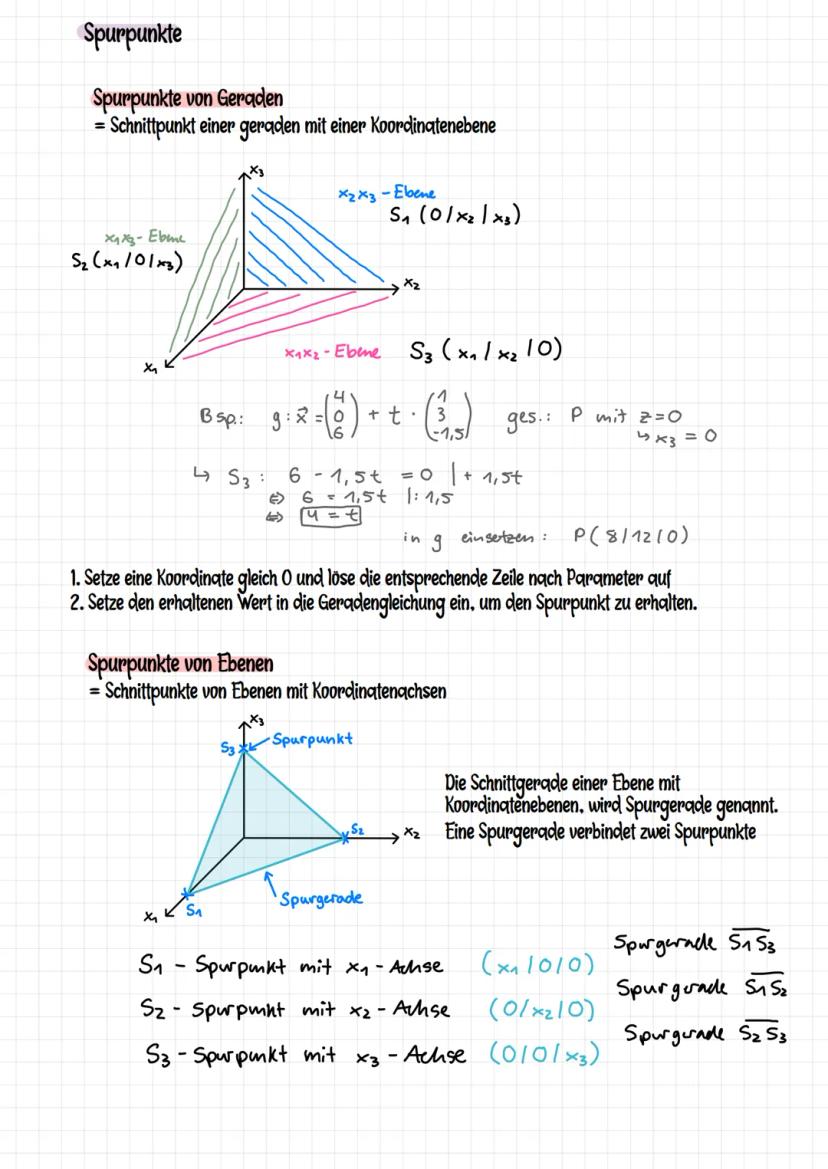 Spurpunkte
Spurpunkte von Geraden
= Schnittpunkt einer geraden mit einer Koordinatenebene
x₃
x₂x₃ - Ebene
S₁ (0/x₂|x₃)
x₁x₃ - Ebene
S₂ (x₁/0/x₃)
x₂
x₁x₂ - Ebene S₃ (x₁/x₂/0)
x₁
Bsp.: g: x⃗ = (4 0 6) + t · (1 3 -1,5) ges.: P mit z=0
↳ x₃ = 0
↳ S₃: 6 - 1,5t = 0 | + 1,5t
⇔ 6 = 1,5t |: 1,5
⇔ 4 = t
in g einsetzen: P(8/12/0)
1. Setze eine Koordinate gleich 0 und löse die entsprechende Zeile nach Parameter auf
2. Setze den erhaltenen Wert in die Geradengleichung ein, um den Spurpunkt zu erhalten.
Spurpunkte von Ebenen
= Schnittpunkte von Ebenen mit Koordinatenachsen
x₃
S₃ Spurpunkt
Die Schnittgerade einer Ebene mit
Koordinatenebenen, wird Spurgerade genannt.
Eine Spurgerade verbindet zwei Spurpunkte
S₂ x₂
Spurgerade
x₁ S₁
Spurgerade S̅₁S̅₃
S₁ - Spurpunkt mit x₁ - Achse (x₁/0/0)
Spurgerade S̅₁S̅₂
S₂ - Spurpunkt mit x₂ - Achse (0/x₂/0)
Spurgerade S̅₂S̅₃
S₃ - Spurpunkt mit x₃ - Achse (0/0/x₃)